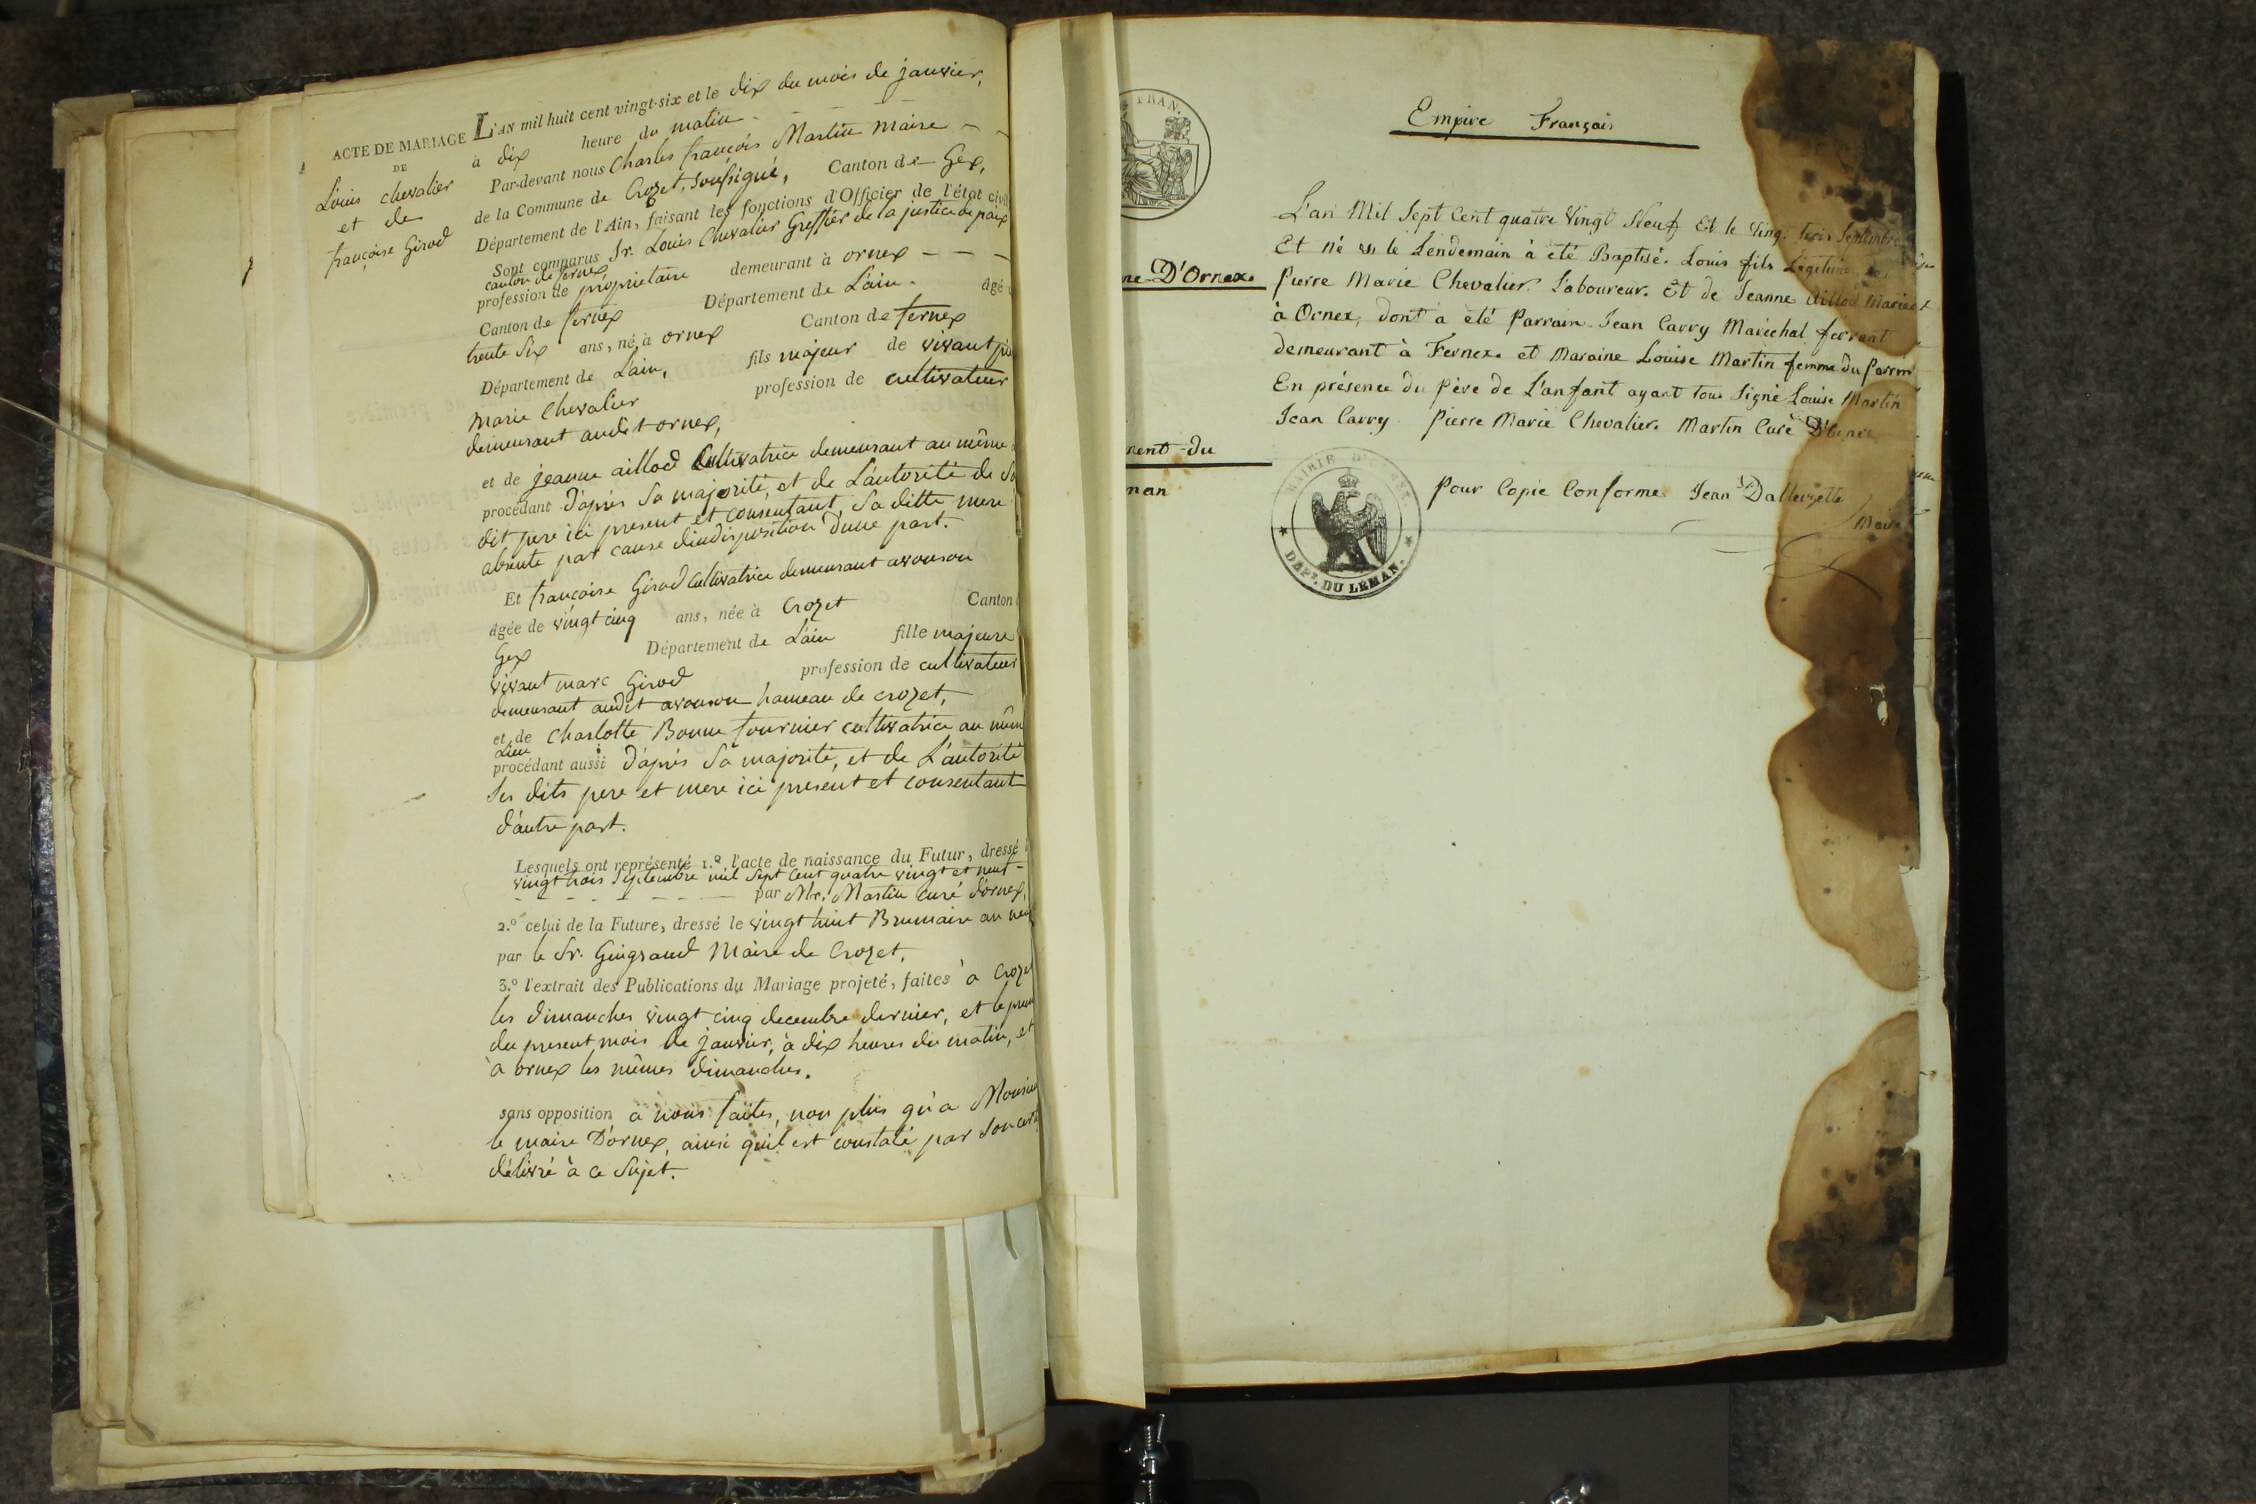 ACTE DE MARIAGE
DE
Louis chevalier
et de
françoise Girod
L'AN mil huit cent vingt-six et le dix du mois de janvier,
à dix heure du matin
Par-devant nous Charles françois Martin Maire
de la Commune de Crozet, soussigné, Canton de Gex,
Département de l'Ain, faisant les fonctions d'Officier de l'état civil
Sont comparus Sr. Louis Chevalier Greffier de la justice de paix
canton de fernex
profession de propriétaire demeurant à ornex
Canton de fernex Département de L'ain. âgé
trente six ans, né à ornex Canton de fernex
Département de L'ain, fils majeur de vivant
marie Chevalier profession de cultivateur
demeurant audit ornex,
et de jeanne aillod Cultivatrice demeurant au même
procédant d'après sa majorité, et de L'autorité de
dit pere ici present et consentant, Sa ditte mere
absente par cause d'indisposition d'une part.
Et françoise Girod Cultivatrice demeurant avouson
âgée de vingt cinq ans, née à Crozet Canton
Gex Département de L'ain fille majeure
vivant marc Girod profession de cultivateur
demeurant audit avouson hameau de crozet,
et de charlotte Bonne fournier cultivatrice au
Lieu
procédant aussi d'après sa majorité, et de L'autorité
ses dits pere et mere ici present et consentant
d'autre part.
Lesquels ont représenté 1.º l'acte de naissance du Futur, dressé
vingt trois Septembre mil Sept Cent quatre vingt et neuf
par Mr. Martin curé d'ornex,
2.º celui de la Future, dressé le vingt huit Brumaire an
par le Sr. Maire de Crozet,
3.º l'extrait des Publications du Mariage projeté, faites à
les dimanches vingt cinq decembre dernier, et le
du present mois de janvier, à dix heures du matin, et
à ornex les mêmes dimanches.
sans opposition à nous faites, non plus qu'a
le maire D'ornex, ainsi qu'il est constaté par son
délivré à ce Sujet.
FRAN.
Empire Français
D'Ornex.
L'an Mil Sept Cent quatre Vingt Neuf Et le Vingt trois Septembre
Et né le Lendemain à été Baptisé. Louis fils Légitime
Pierre Marie Chevalier. Laboureur. Et de Jeanne Aillod Mariés
à Ornex, dont a été Parrain Jean Carry Maréchal ferrant
demeurant à Fernex. et Maraine Louise Martin femme du Parrin
En présence du Père de L'anfant ayant tous Signé Louise Martin
Jean Carry Pierre Marie Chevalier. Martin Curé D'Ornex
du
MAIRIE
DÉPT. DU LÉMAN.
Pour Copie Conforme Jean
Maire